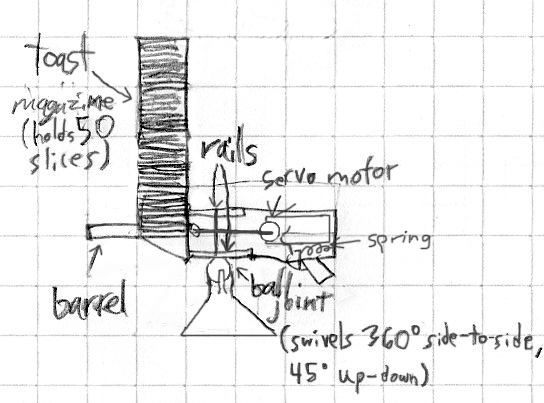 toast
magazine
(holds 50
slices)
rails
servo motor
spring
barrel
ball
joint
(swivels 360° side-to-side,
45° up-down)